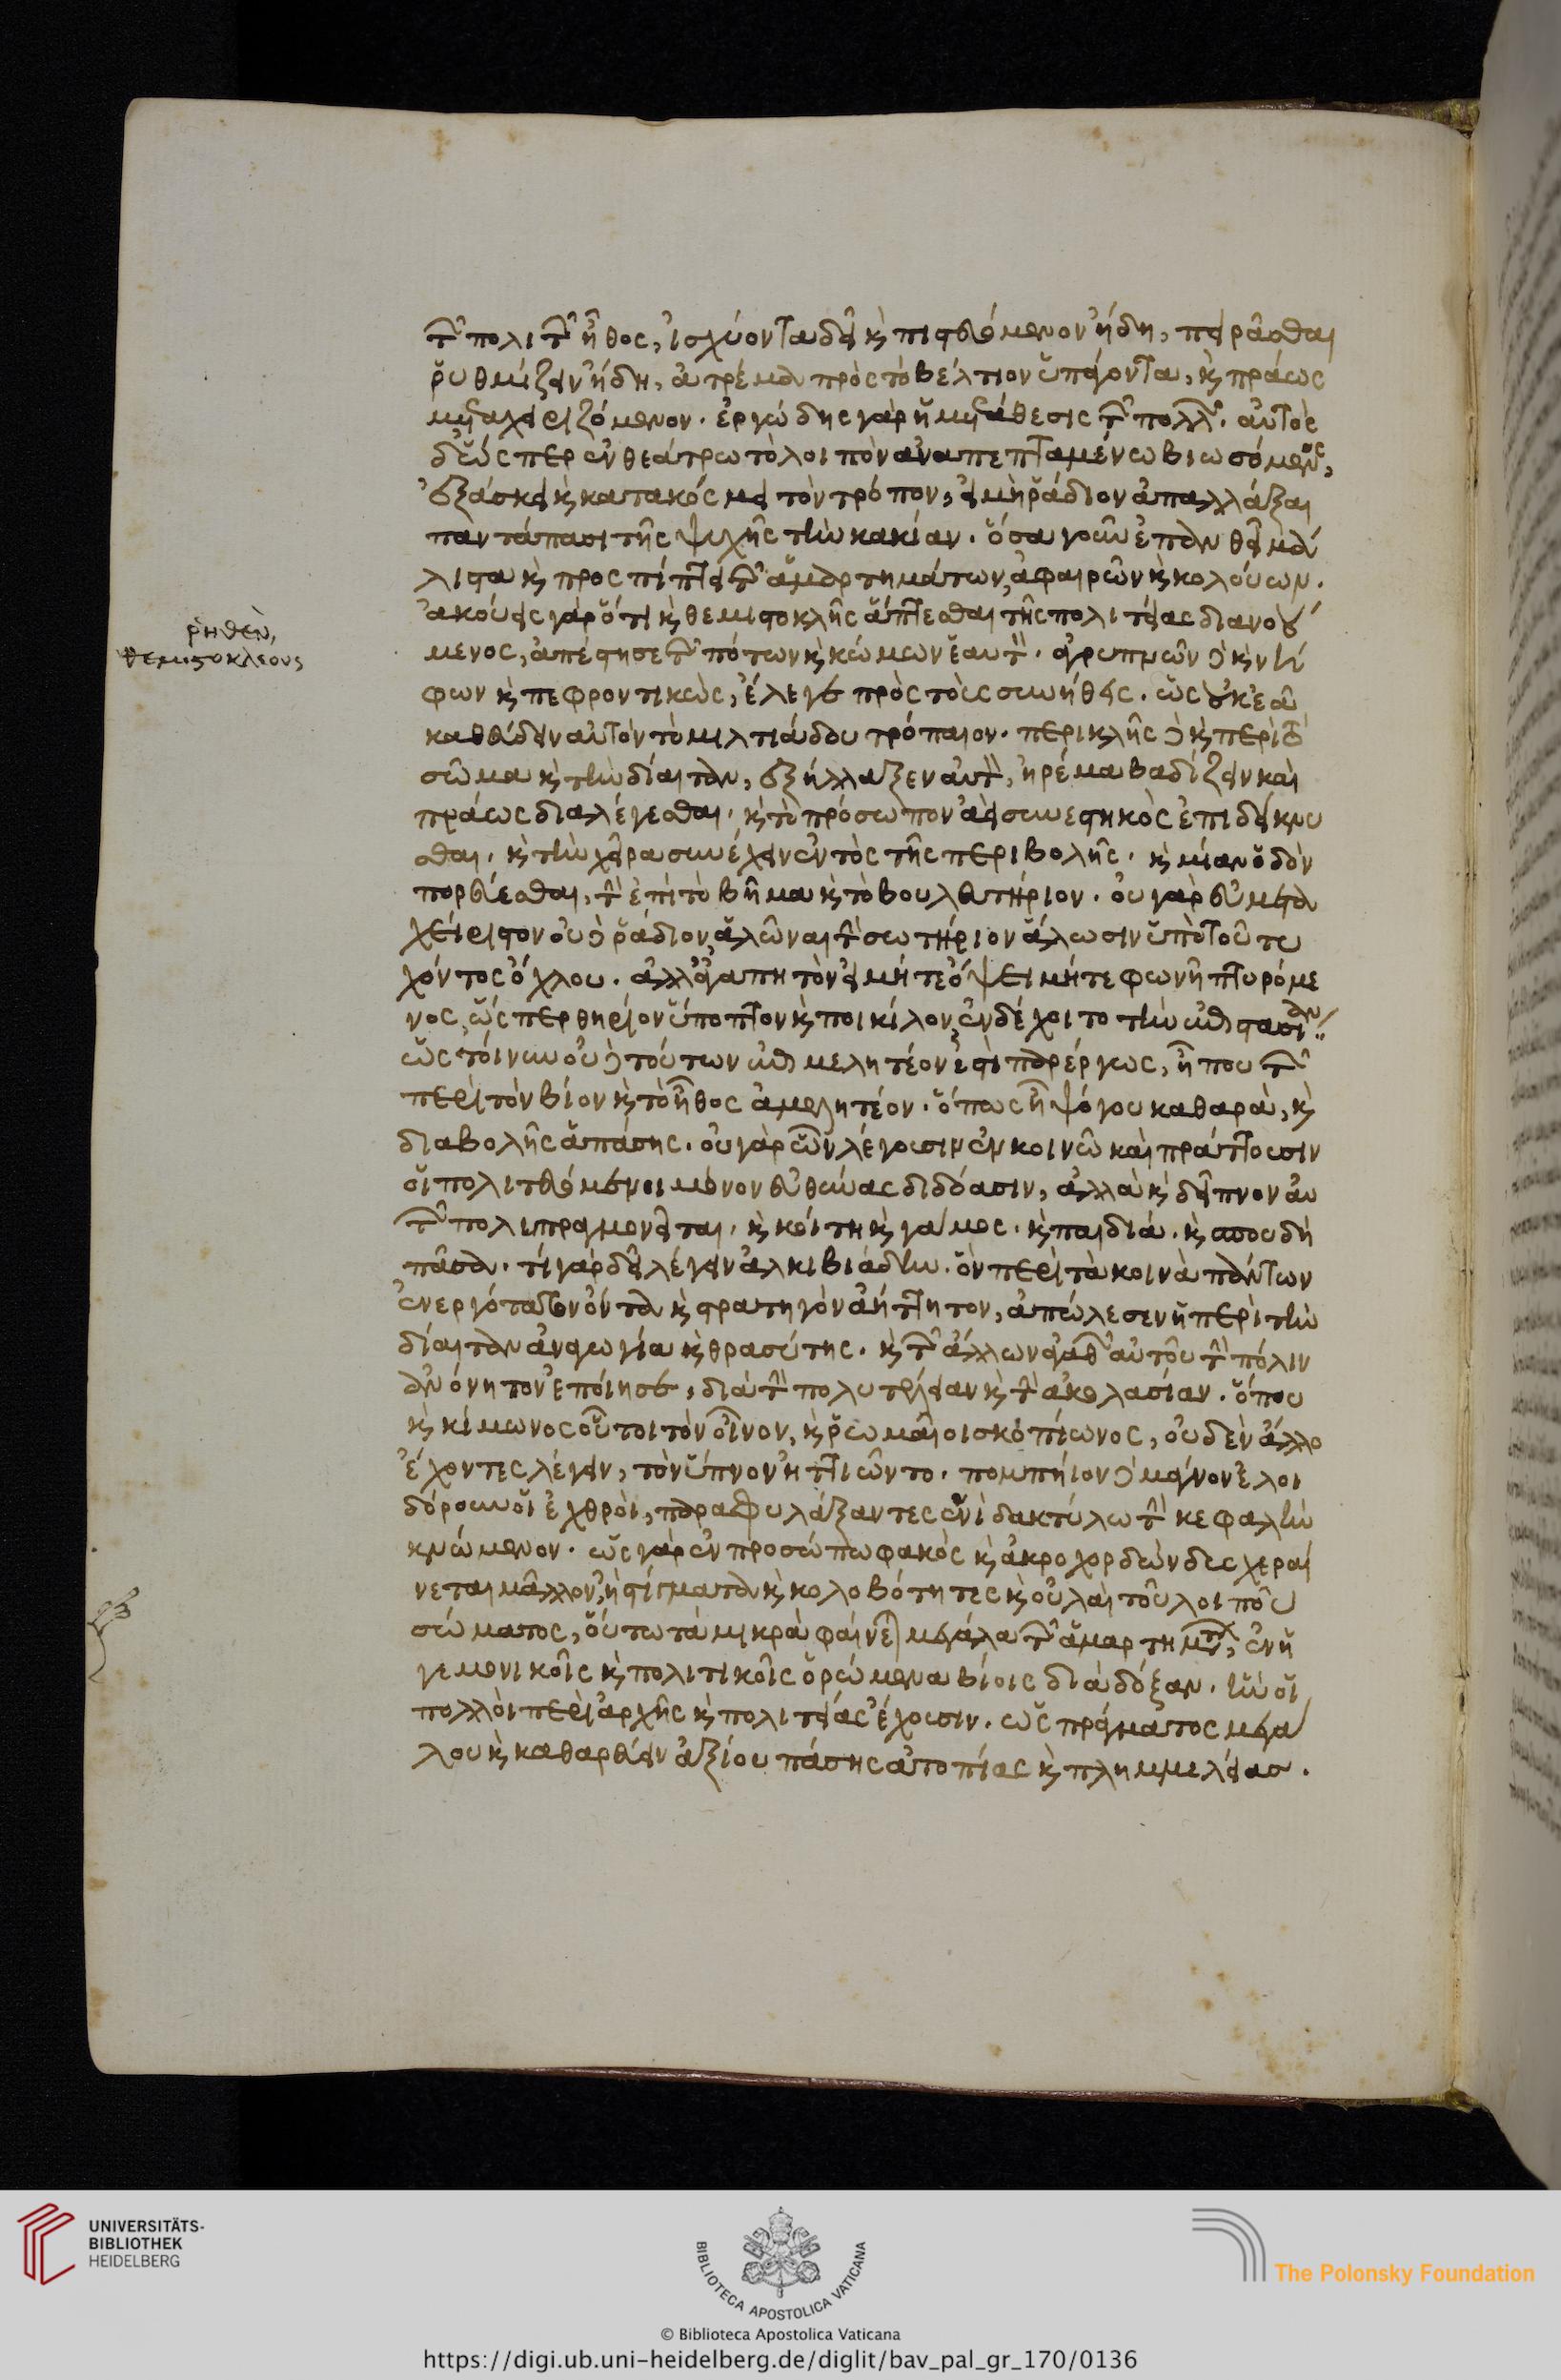 τῶν πολιτῶν ἦθος, ἰσχύοντα δεῖ καὶ πιστευόμενον ἤδη, πειρᾶσθαι
ῥυθμίζειν ἤδη, ἀτρέμα πρὸς τὸ βέλτιον ὑπάγοντα, καὶ πράως
μεταχειριζόμενον. ἐργώδης γὰρ ἡ μετάθεσις τῶν πολλῶν. αὐτὸς
δ' ὥσπερ ἐν θεάτρω τὸ λοιπὸν ἀναπεπταμένω βιωσόμενος,
ἐξάσκει καὶ κατακόσμει τὸν τρόπον, εἰ μὴ ῥάδιον ἀπαλλάξαι
παντάπασι τῆς ψυχῆς τὴν κακίαν. ὅσα γοῦν ἐπανθεῖ μά
λιστα καὶ προσπίπτει τῶν ἁμαρτημάτων, ἀφαιρῶν καὶ κολούων.
ἀκούεις γὰρ ὅτι καὶ θεμιστοκλῆς ἅπτεσθαι τῆς πολιτείας διανοού
μενος, ἀπέστησε τῶν πότων καὶ κώμων ἑαυτὸν. ἀγρυπνῶν δὲ καὶ νή
φων καὶ πεφροντικὼς, ἔλεγε πρὸς τοὺς συνήθεις. ὡς οὐκ ἐᾶ
καθεύδειν αὐτὸν τὸ μιλτιάδου τρόπαιον. περικλῆς δὲ καὶ περὶ τὸ
σῶμα καὶ τὴν δίαιταν, ἐξήλλαξεν αὑτὸν, ἠρέμα βαδίζειν καὶ
πράως διαλέγεσθαι. καὶ τὸ πρόσωπον ἀεὶ συνεστηκὸς ἐπιδείκνυ
σθαι. καὶ τὴν χεῖρα συνέχειν ἐντὸς τῆς περιβολῆς. καὶ μίαν ὁδὸν
πορεύεσθαι, τὴν ἐπὶ τὸ βῆμα καὶ τὸ βουλευτήριον. οὐ γὰρ εὐμετα
χείριστον οὐδὲ ῥάδιον ἁλῶναι τὴν σωτήριον ἅλωσιν ὑπὸ τοῦ τυ
χόντος ὄχλου. ἀλλ' ἀγαπητὸν εἰ μήτε ὄψει μήτε φωνῆ πτυρόμε
νος, ὥσπερ θηρίον ὕποπτον καὶ ποικίλον, ἐνδέχοιτο τὴν ἐπιστασίαν
ὡς τοίνυν οὐδὲ τούτων ἐπιμελητέον ἐστὶ παρέργως, ἦ που τῶν
περὶ τὸν βίον καὶ τὸ ἦθος ἀμελητέον. ὅπως ἦ ψόγου καθαρὰ, καὶ
διαβολῆς ἁπάσης. οὐ γὰρ ὧν λέγουσιν ἐν κοινῶ καὶ πράττουσιν
οἱ πολιτευόμενοι μόνον εὐθύνας διδόασιν, ἀλλὰ καὶ δεῖπνον αὐ
τῶν πολυπραγμονεῖται. καὶ κοίτη καὶ γάμος. καὶ παιδιά. καὶ σπουδὴ
πᾶσα. τί γὰρ δεῖ λέγειν ἀλκιβιάδην. ὃν περὶ τὰ κοινὰ πάντων
ἐνεργότατον ὄντα καὶ στρατηγὸν ἀήττητον, ἀπώλεσεν ἡ περὶ τὴν
δίαιταν ἀναγωγία καὶ θρασύτης. καὶ τῶν ἄλλων ἀγαθῶν αὐτοῦ τὴν πόλιν
ἀνόνητον ἐποίησε, διὰ τὴν πολυτέλειαν καὶ τὴν ἀκολασίαν. ὅπου
καὶ κίμωνος οὗτοι τὸν οἶνον, καὶ ῥωμαῖοι σκόπίωνος, οὐδὲν ἄλλο
ἔχοντες λέγειν, τὸν ὕπνον ἠτιῶντο. πομπήιον δὲ μάγνον ἐλοι
δόρουν οἱ ἐχθροὶ, παραφυλάξαντες ἑνὶ δακτύλω τὴν κεφαλὴν
κνώμενον. ὡς γὰρ ἐν προσώπω φακὸς καὶ ἀκροχορδὼν δυσχεραί
νεται μᾶλλον, ἢ στίγματα καὶ κολοβότητες καὶ οὐλαὶ τοῦ λοιποῦ
σώματος, οὕτω τὰ μικρὰ φαίνεται μεγάλα τῶν ἁμαρτημάτων, ἐν ἡ
γεμονικοῖς καὶ πολιτικοῖς ὁρώμενα βίοις διὰ δόξαν. ἣν οἱ
πολλοὶ περὶ ἀρχῆς καὶ πολιτείας ἔχουσιν. ὡς πράγματος μεγά
λου καὶ καθαρεύειν ἀξίου πάσης ἀτοπίας καὶ πλημμελείας.
ῥηθὲν,
θεμιστοκλέους
UNIVERSITÄTS-
BIBLIOTHEK
HEIDELBERG
BIBLIOTECA APOSTOLICA VATICANA
The Polonsky Foundation
© Biblioteca Apostolica Vaticana
https://digi.ub.uni-heidelberg.de/diglit/bav_pal_gr_170/0136